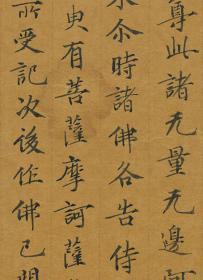 尊此諸无量无邊阿
来尒時諸佛各告侍
臾有菩薩摩訶薩
所受記次後作佛已問